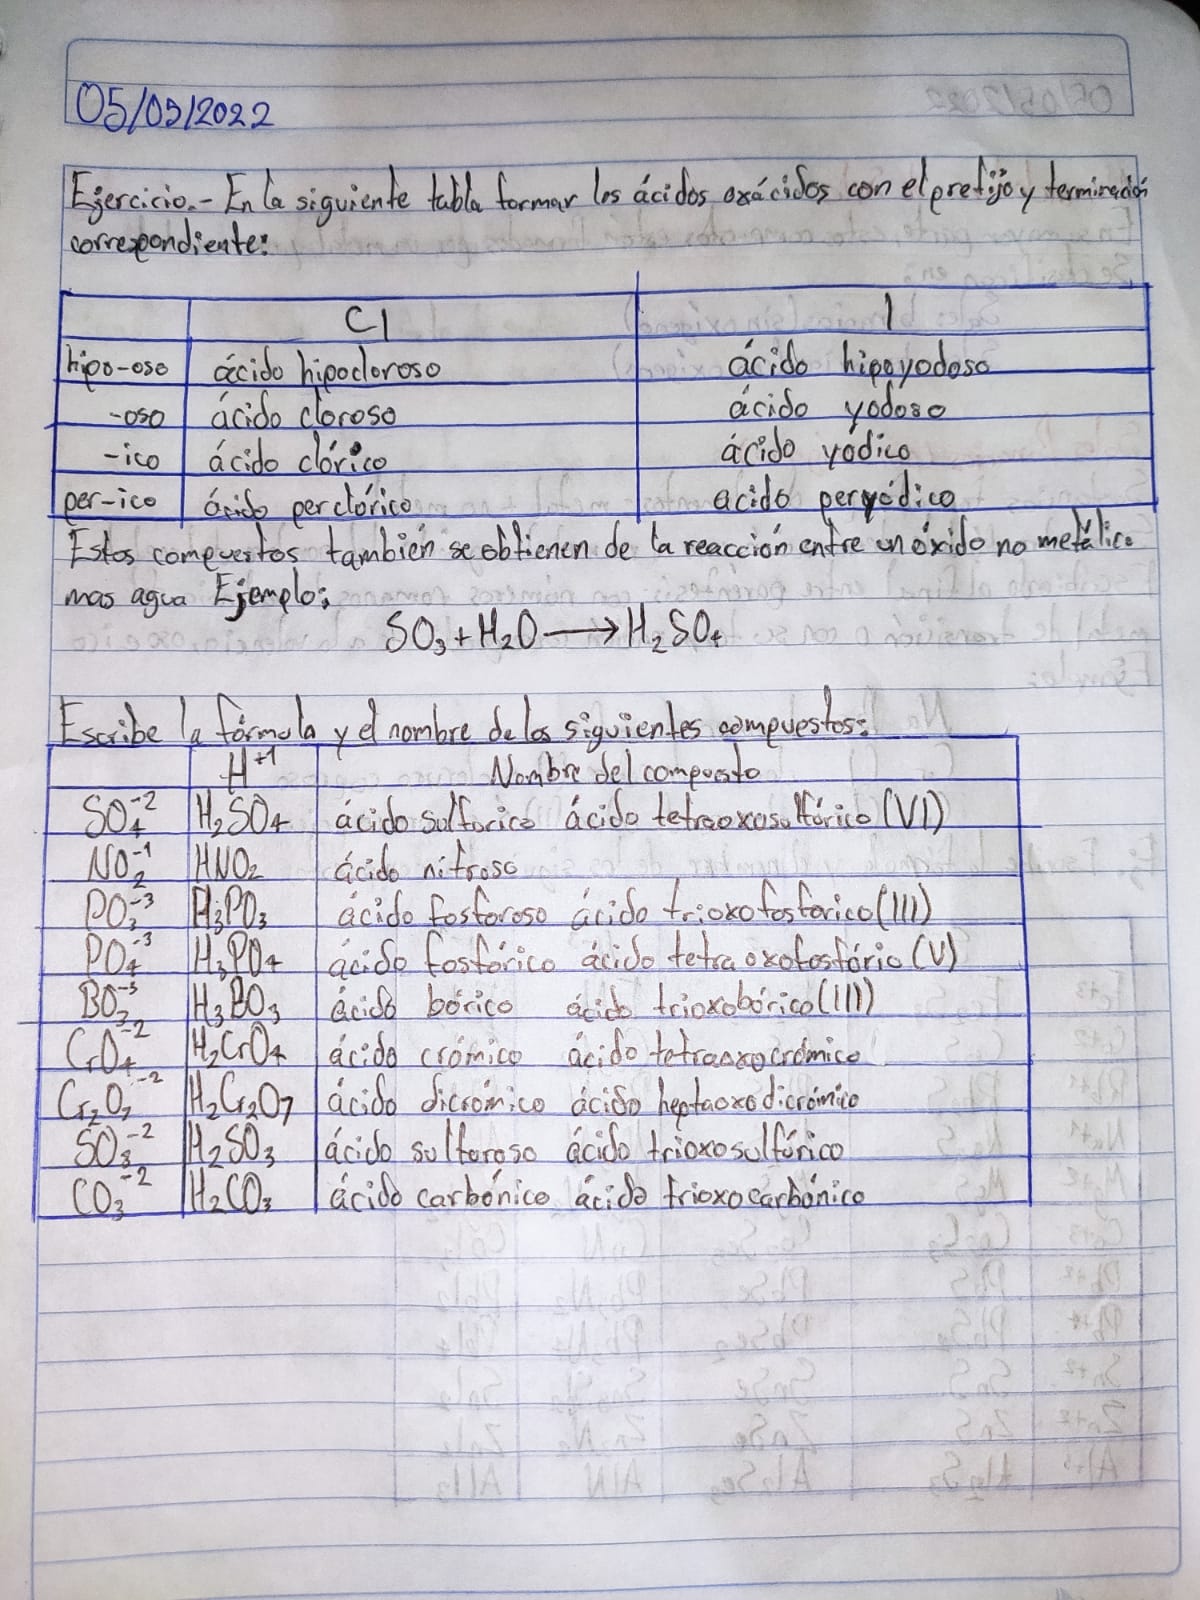 05/05/2022
Ejercicio.- En la siguiente tabla formar los ácidos oxácidos con el prefijo y terminación
correspondiente:
Cl I
hipo-oso ácido hipocloroso ácido hipoyodoso
-oso ácido cloroso ácido yodoso
-ico ácido clórico ácido yódico
per-ico ácido perclórico acido peryódico
Estos compuestos también se obtienen de la reacción entre un óxido no metálico
mas agua Ejemplo:
SO₃ + H₂O → H₂SO₄
Escribe la fórmula y el nombre de los siguientes compuestos:
H⁺¹ Nombre del compuesto
SO₄⁻² H₂SO₄ ácido sulfurico ácido tetraoxosulfúrico (VI)
NO₂⁻¹ HNO₂ ácido nitroso
PO₃⁻³ H₃PO₃ ácido fosforoso ácido trioxofosforico (III)
PO₄⁻³ H₃PO₄ ácido fosfórico ácido tetraoxofosfório (V)
BO₃⁻³ H₃BO₃ ácido bórico ácido trioxobórico (III)
CrO₄⁻² H₂CrO₄ ácido crómico ácido tetraoxocrómico
Cr₂O₇⁻² H₂Cr₂O₇ ácido dicrómico ácido heptaoxodicrómico
SO₃⁻² H₂SO₃ ácido sulfuroso ácido trioxosulfúrico
CO₃⁻² H₂CO₃ ácido carbónico ácido trioxocarbónico